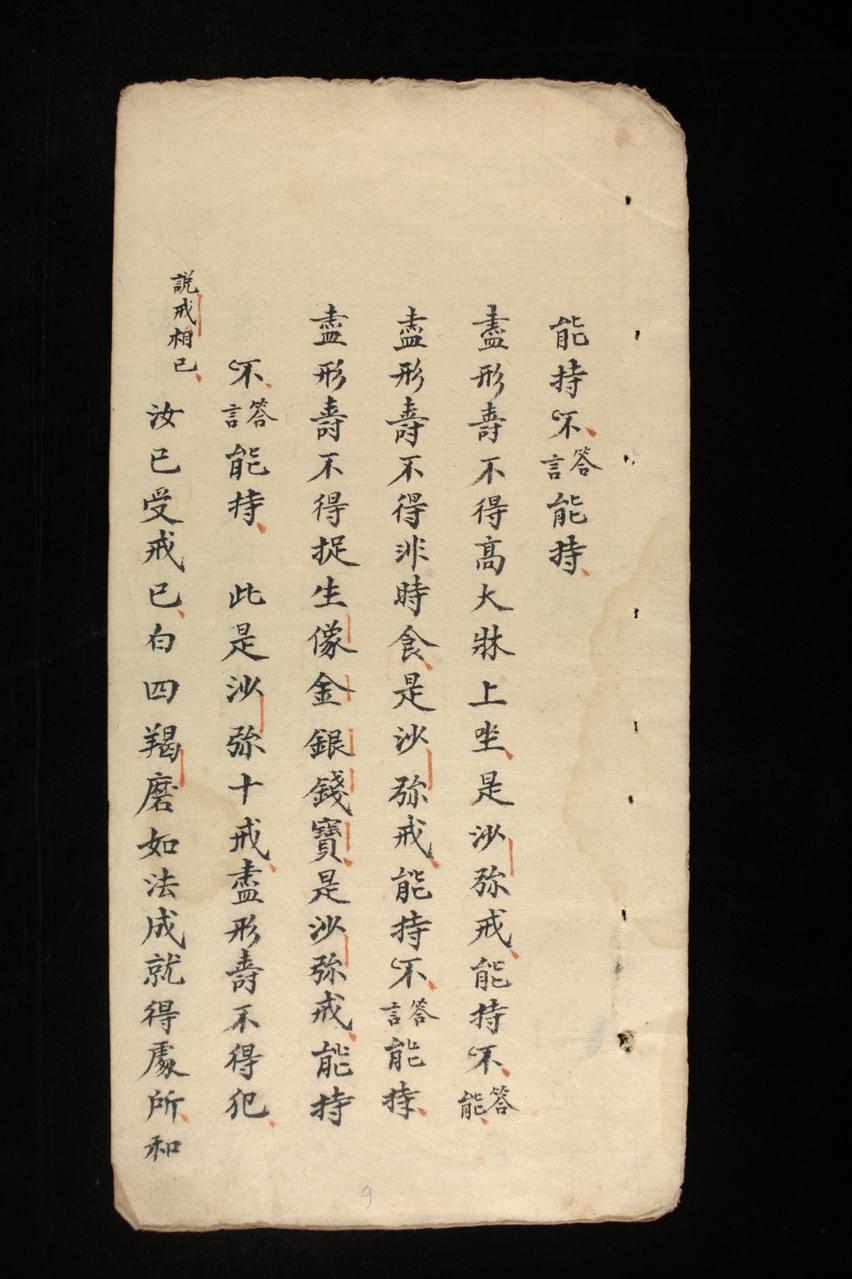 能持不答言能持
盡形壽不得高大牀上坐是沙弥戒能持不答能
盡形壽不得非時食是沙弥戒能持不答言能持
盡形壽不得捉生像金銀錢寶是沙弥戒能持
不答言能持 此是沙弥十戒盡形壽不得犯
說戒相已 汝已受戒已白四羯磨如法成就得處所和
9